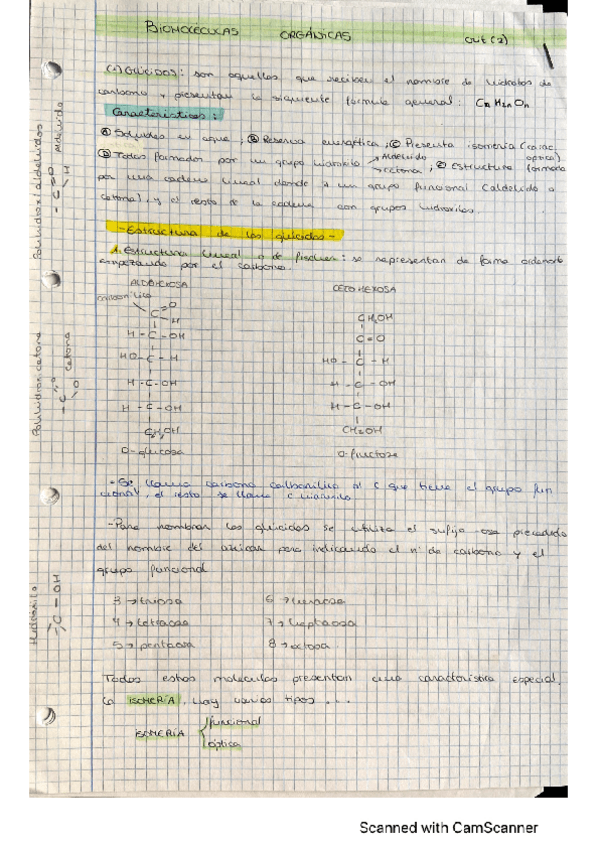 BIOMOLÉCULAS ORGÁNICAS out (2)
(1) Glúcidos: son aquellos que reciben el nombre de hidratos de
carbono y presentan la siguiente fórmula general: Cn H2n On
Características:
Ⓐ Solubles en agua, Ⓑ Reserva energética, Ⓒ Presenta isomería (
óptica)
Ⓓ Todos formados por un grupo → Aldehído
→ cetona, Ⓔ Estructura formada
por una cadena lineal donde un grupo funcional (aldehído o
cetona), y el resto de la cadena con grupos hidroxilos.
- Estructura de los glúcidos -
1. Estructura lineal o de fischer: se representan de forma
empezando por el carbono.
ALDOHEXOSA
CETOHEXOSA
carbonílico
C=O
H
H-C-OH
HO-C-H
H-C-OH
H-C-OH
CH2OH
D-glucosa
CH2OH
C=O
HO-C-H
H-C-OH
H-C-OH
CH2OH
D-fructosa
- Se llama carbono carbonílico al C que tiene el grupo fun
cional, el resto se llama C
- Para nombrar los glúcidos se utiliza el sufijo osa precedido
del nombre del azúcar para indicando el nº de carbono y el
grupo funcional
3 → triosa 6 → hexosa
4 → tetraosa 7 → heptaosa
5 → pentaosa 8 → octosa
Todas estas moléculas presentan una característica especial,
la ISOMERÍA, hay varios tipos ...
ISOMERÍA
funcional
óptica
Polihidroxialdehídos
aldehído
-C=O
H
Polihidroxicetona
cetona
-C=O
Hidroxilo
-C-OH
Scanned with CamScanner